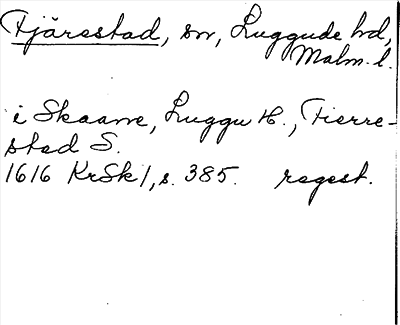 Fjärestad, sn, Luggude hd,
Malm. l.
i Skaane, Luggu H., Fierre-
sted S.
1616 KrSk 1, s. 385. regest.